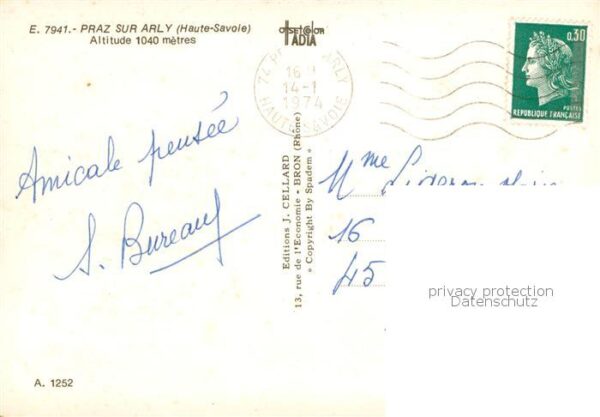 E. 7941.- PRAZ SUR ARLY (Haute-Savoie)
Altitude 1040 mètres
OFFSETCOLOR
IADIA
74 PRAZ ARLY
16 H
14-1
1974
HAUTE-SAVOIE
0,30
POSTES
REPUBLIQUE FRANÇAISE
Amicale pensée
S. Bureau
Editions J. CELLARD
13, rue de l'Economie - BRON (Rhône)
« Copyright By Spadem »
Mme
16
45
privacy protection
Datenschutz
A. 1252